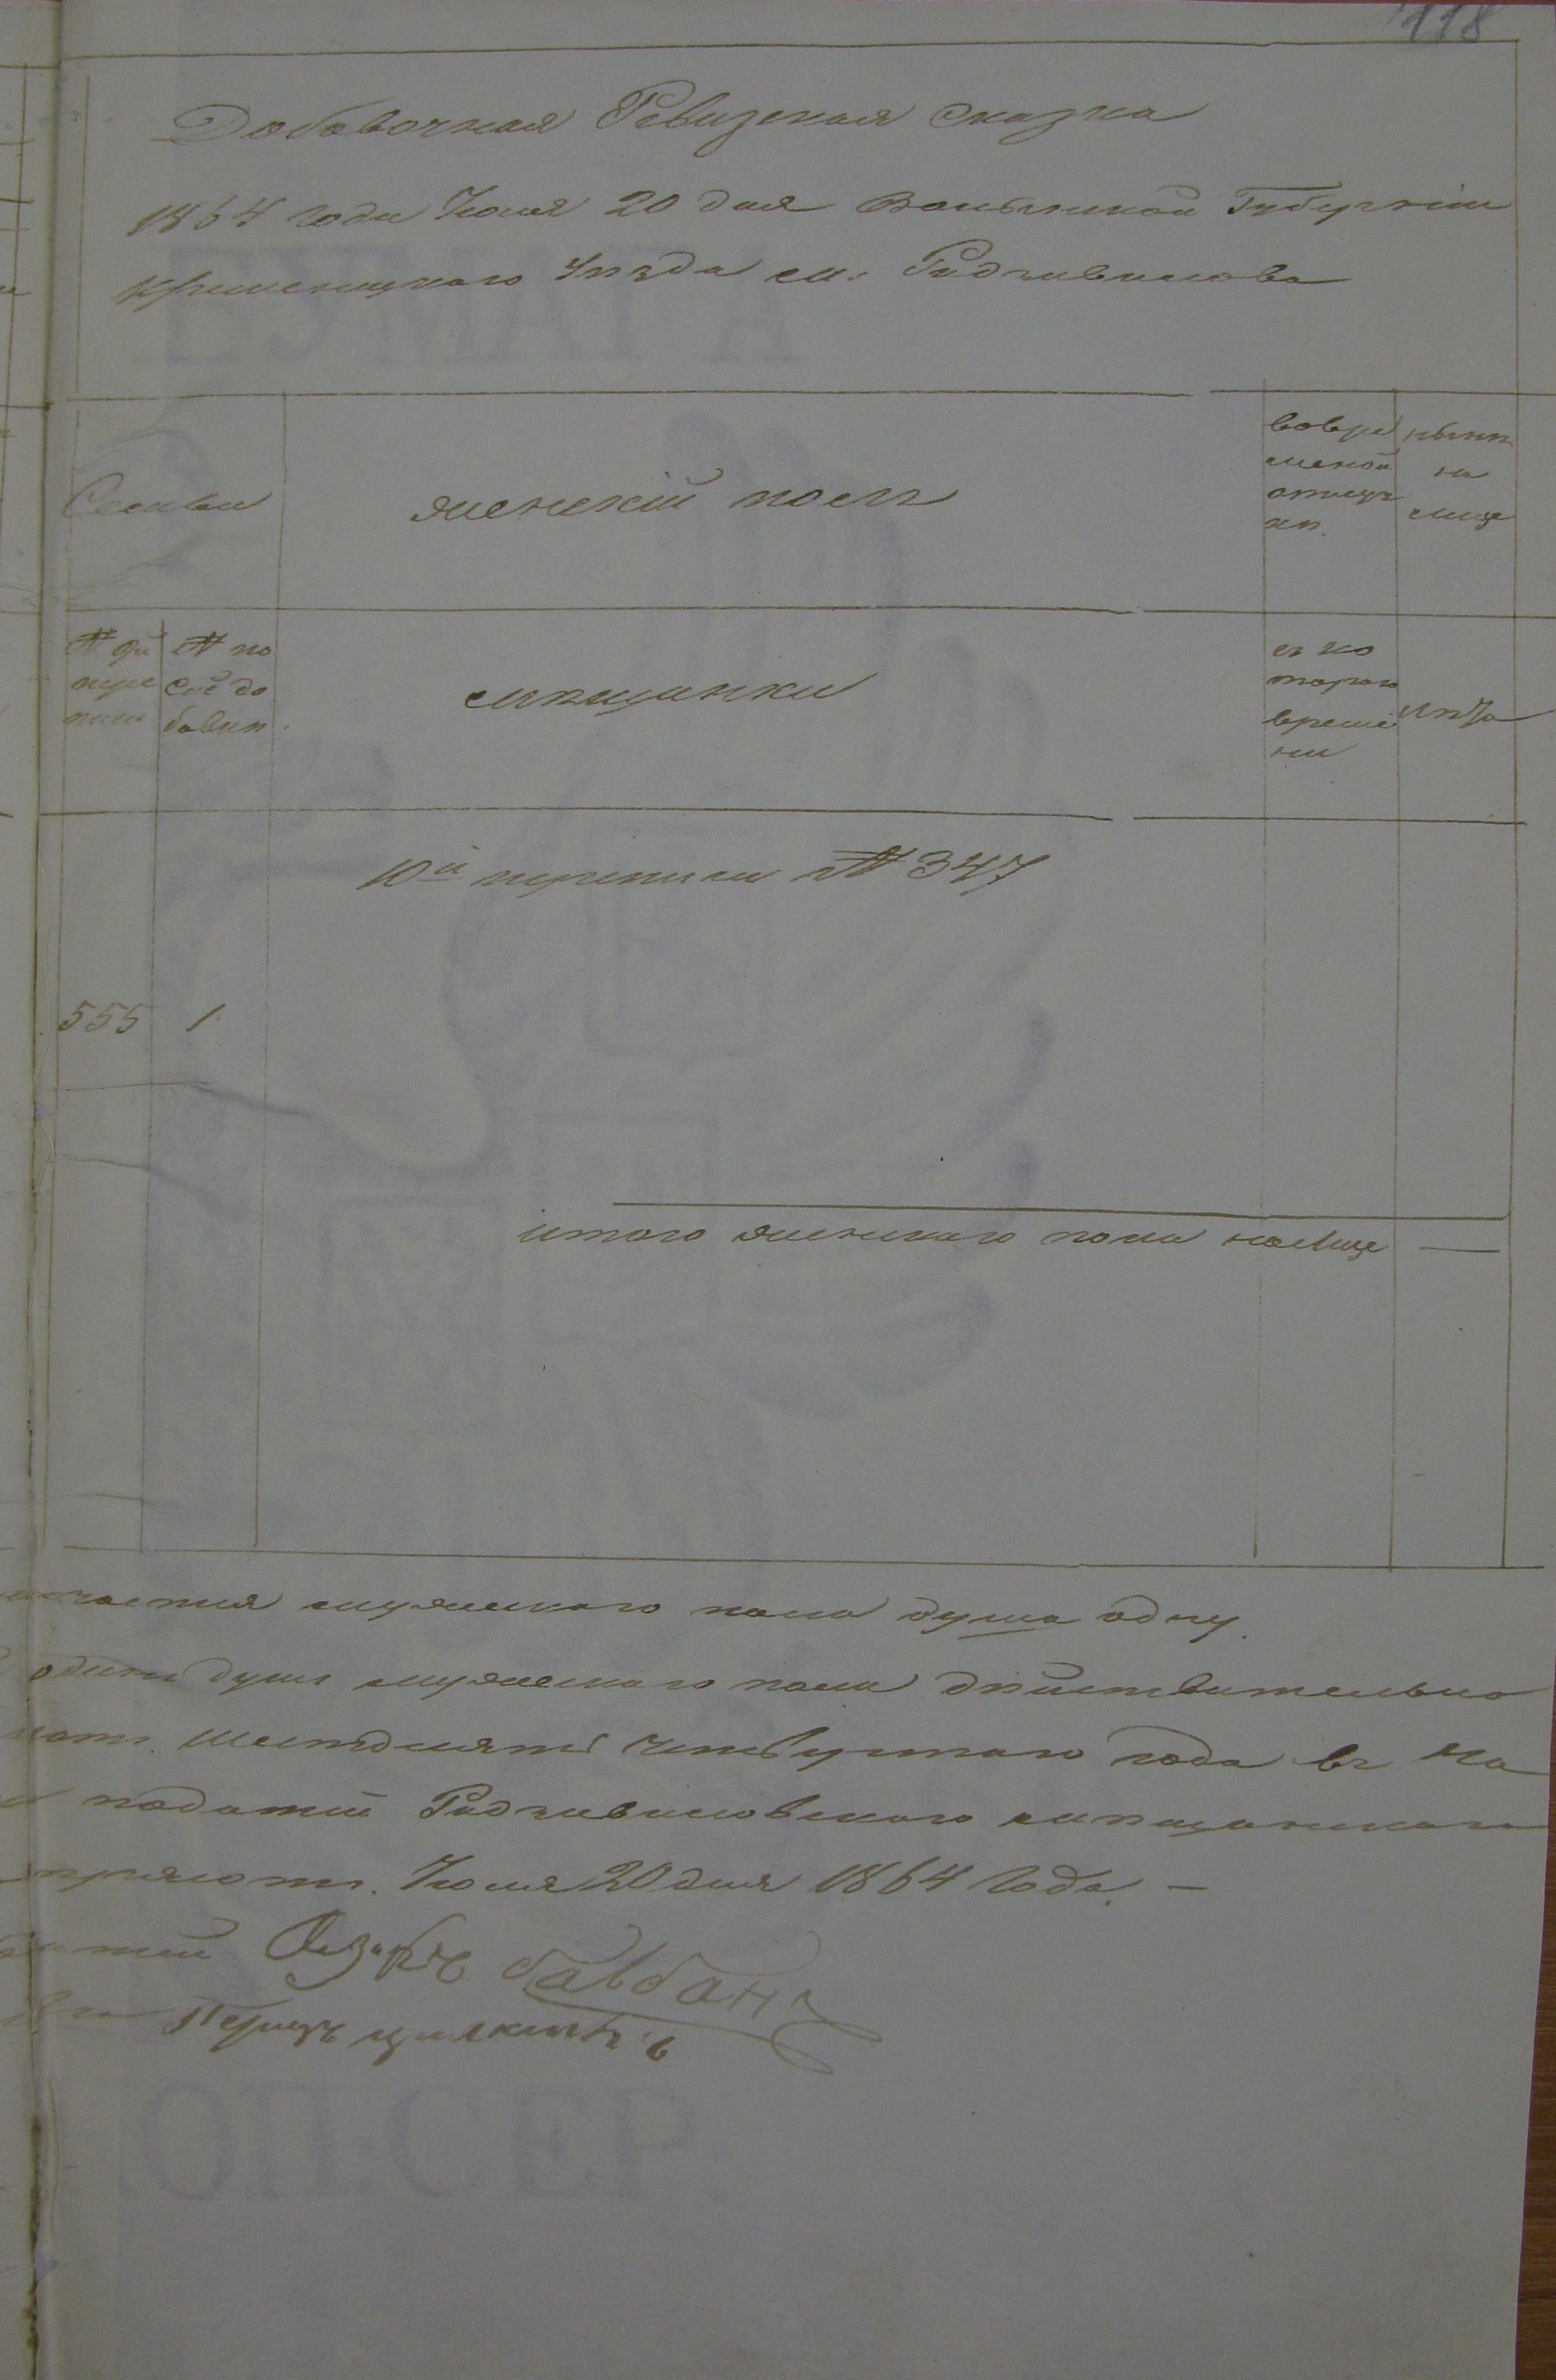 118
Добавочная Ревизская Сказка
1864 года Июля 20 дня Волынской Губерніи
Кременецкаго Уѣзда м: Радзивилова
Семьи
женскій полъ
вовре
менной
отлуч
кѣ.
нынѣ
на
лице
№
пере
писи
№ по
сей до
бавоч.
мѣщанки
съ ко
тораго
време
ни
лѣта
10й переписи № 347
555 1
итого женскаго пола налице —
мужескаго пола душа одну.
душа мужескаго пола дѣйствительно
шестдесять четвертаго года въ
податей Радзивиловскаго мѣщанскаго
Июля 20 дня 1864 года. —
Балбанъ
Перецъ
РЕСПО